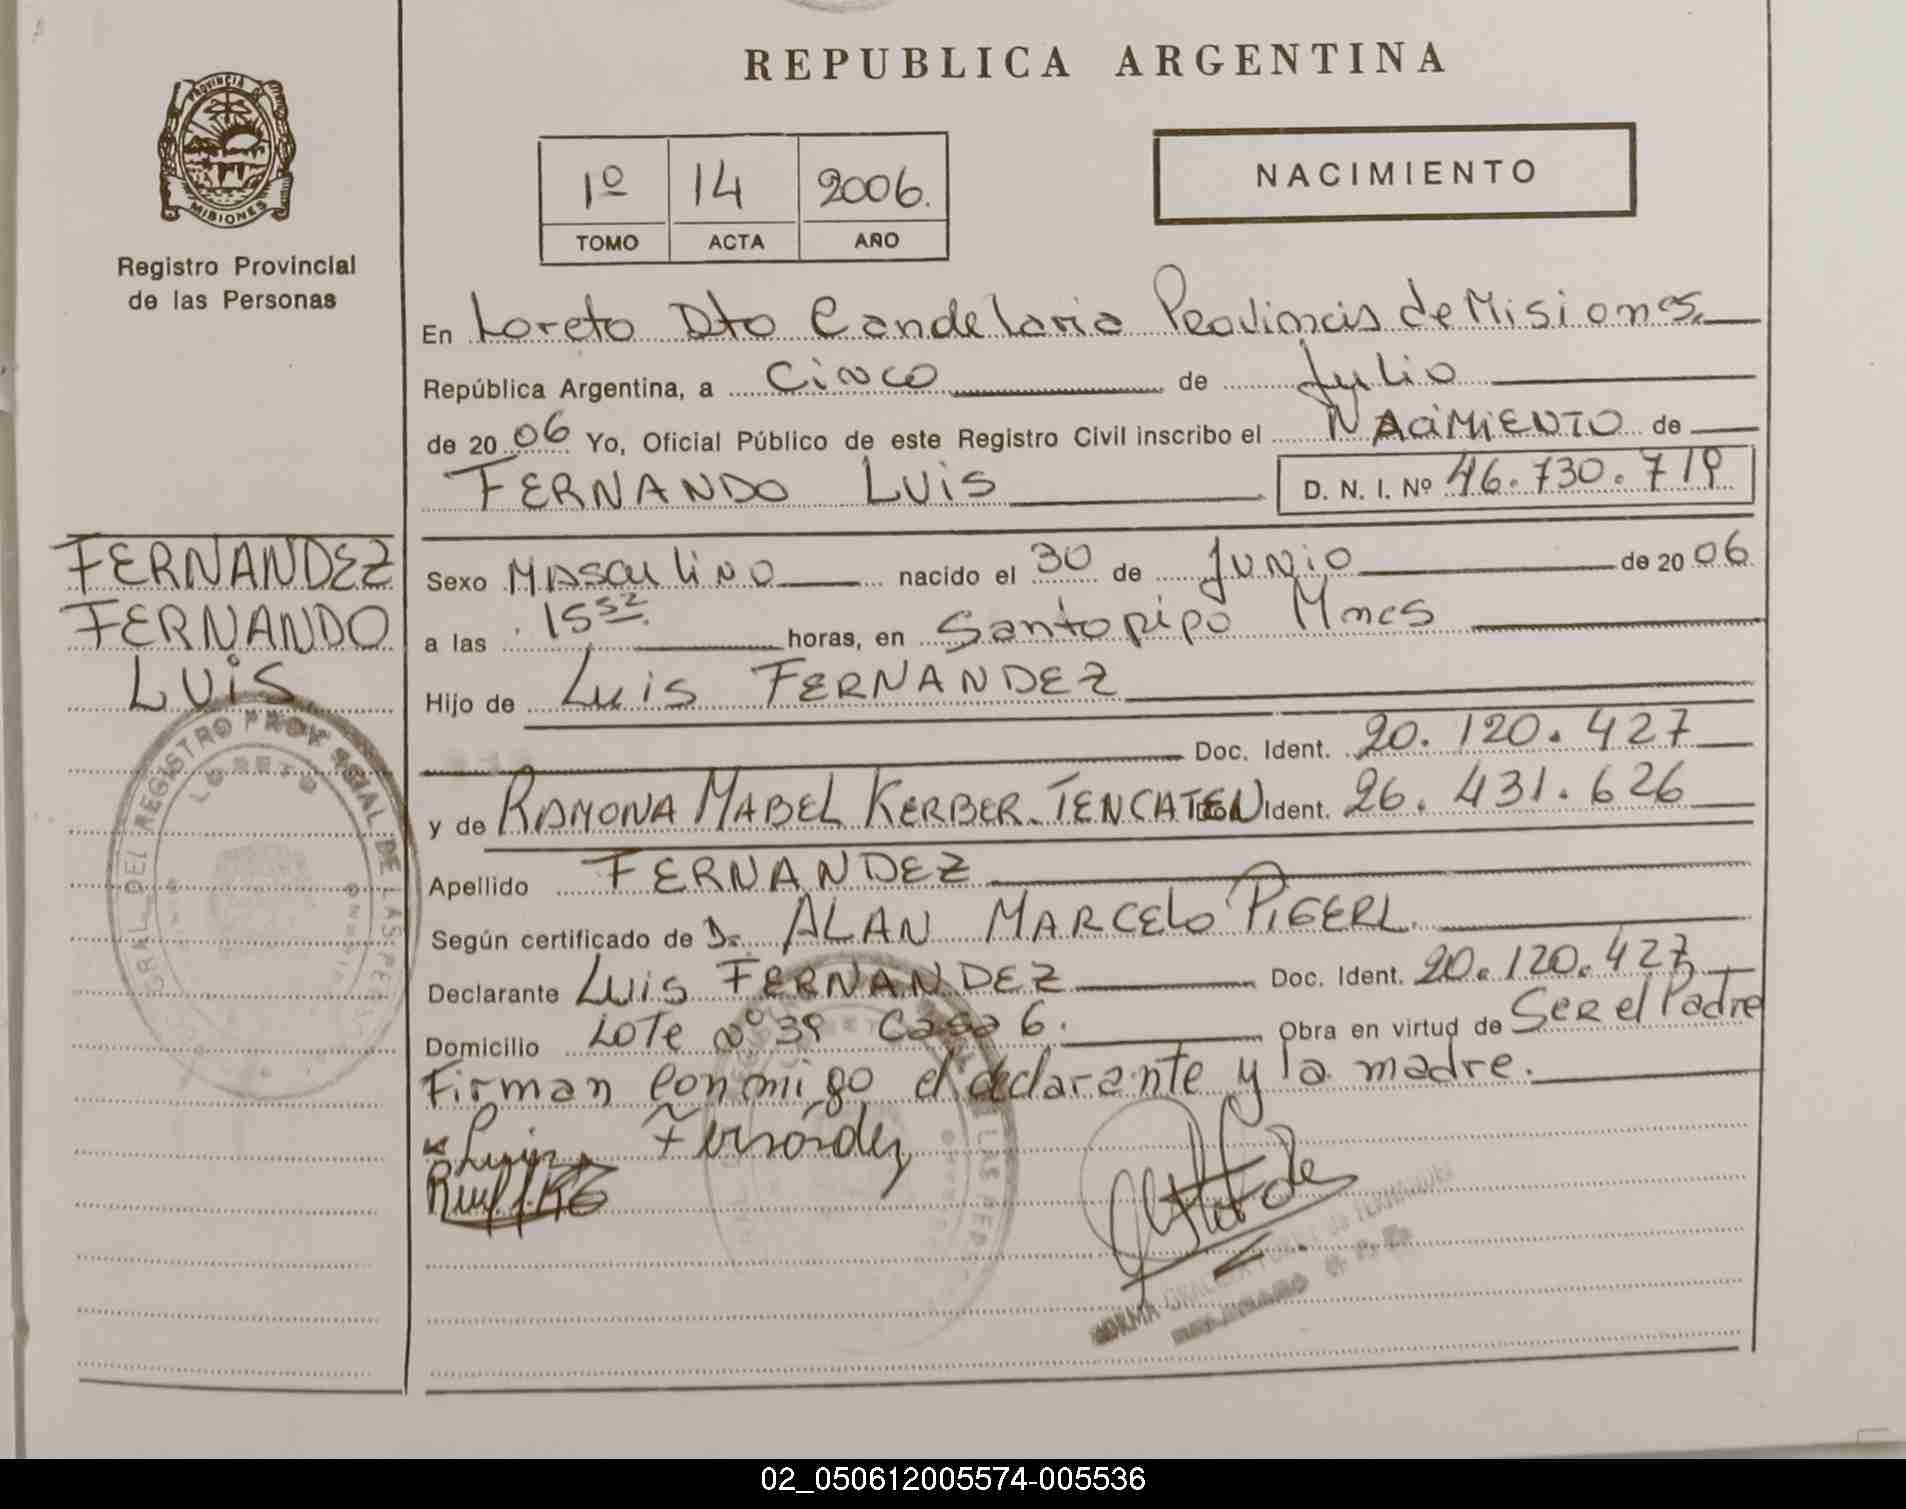 REPUBLICA ARGENTINA
PROVINCIA DE
MISIONES
Registro Provincial
de las Personas
1º 14 2006.
TOMO ACTA AÑO
NACIMIENTO
En Loreto Dto Candelaria Provincia de Misiones.
República Argentina, a cinco de Julio
de 2006 Yo, Oficial Público de este Registro Civil inscribo el NACIMIENTO de
FERNANDO LUIS D. N. I. Nº 46.730.719
FERNANDEZ
FERNANDO
LUIS
Sexo Masculino nacido el 30 de Junio de 2006
a las 15 52 horas, en Santo pipo Mnes
Hijo de Luis FERNANDEZ
Doc. Ident. 20.120.427
y de RAMONA MABEL KERBER-TENCATEN Ident. 26.431.626
Apellido FERNANDEZ
Según certificado de Dr. ALAN MARCELO PIGERL.
Declarante Luis FERNANDEZ Doc. Ident. 20.120.427
Domicilio LOTE Nº 39 Casa 6. Obra en virtud de Ser el Padre
Firman conmigo el declarante y la madre.
Luis Fernández
LORETO
02_050612005574-005536